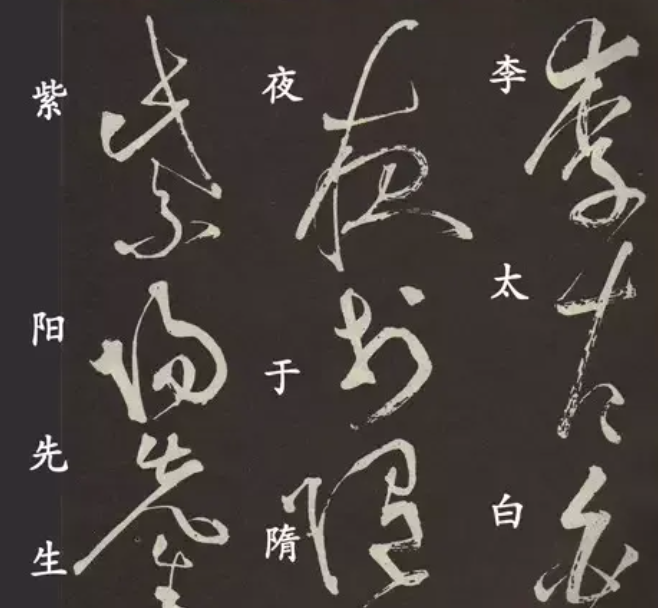 李太白
夜于隋
紫阳先生